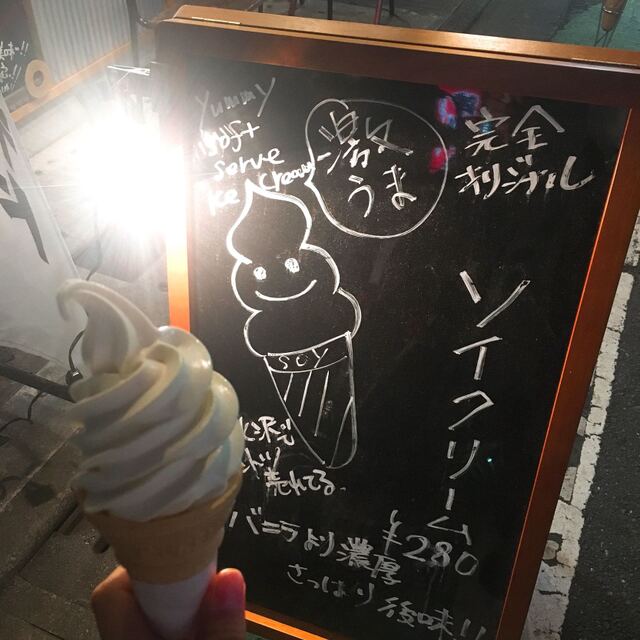 yummy
soft
serve
ice cream
激
うま
完全
オリジナル
ソイクリーム
¥280
SOY
売れてる
バニラより濃厚
さっぱり後味!!